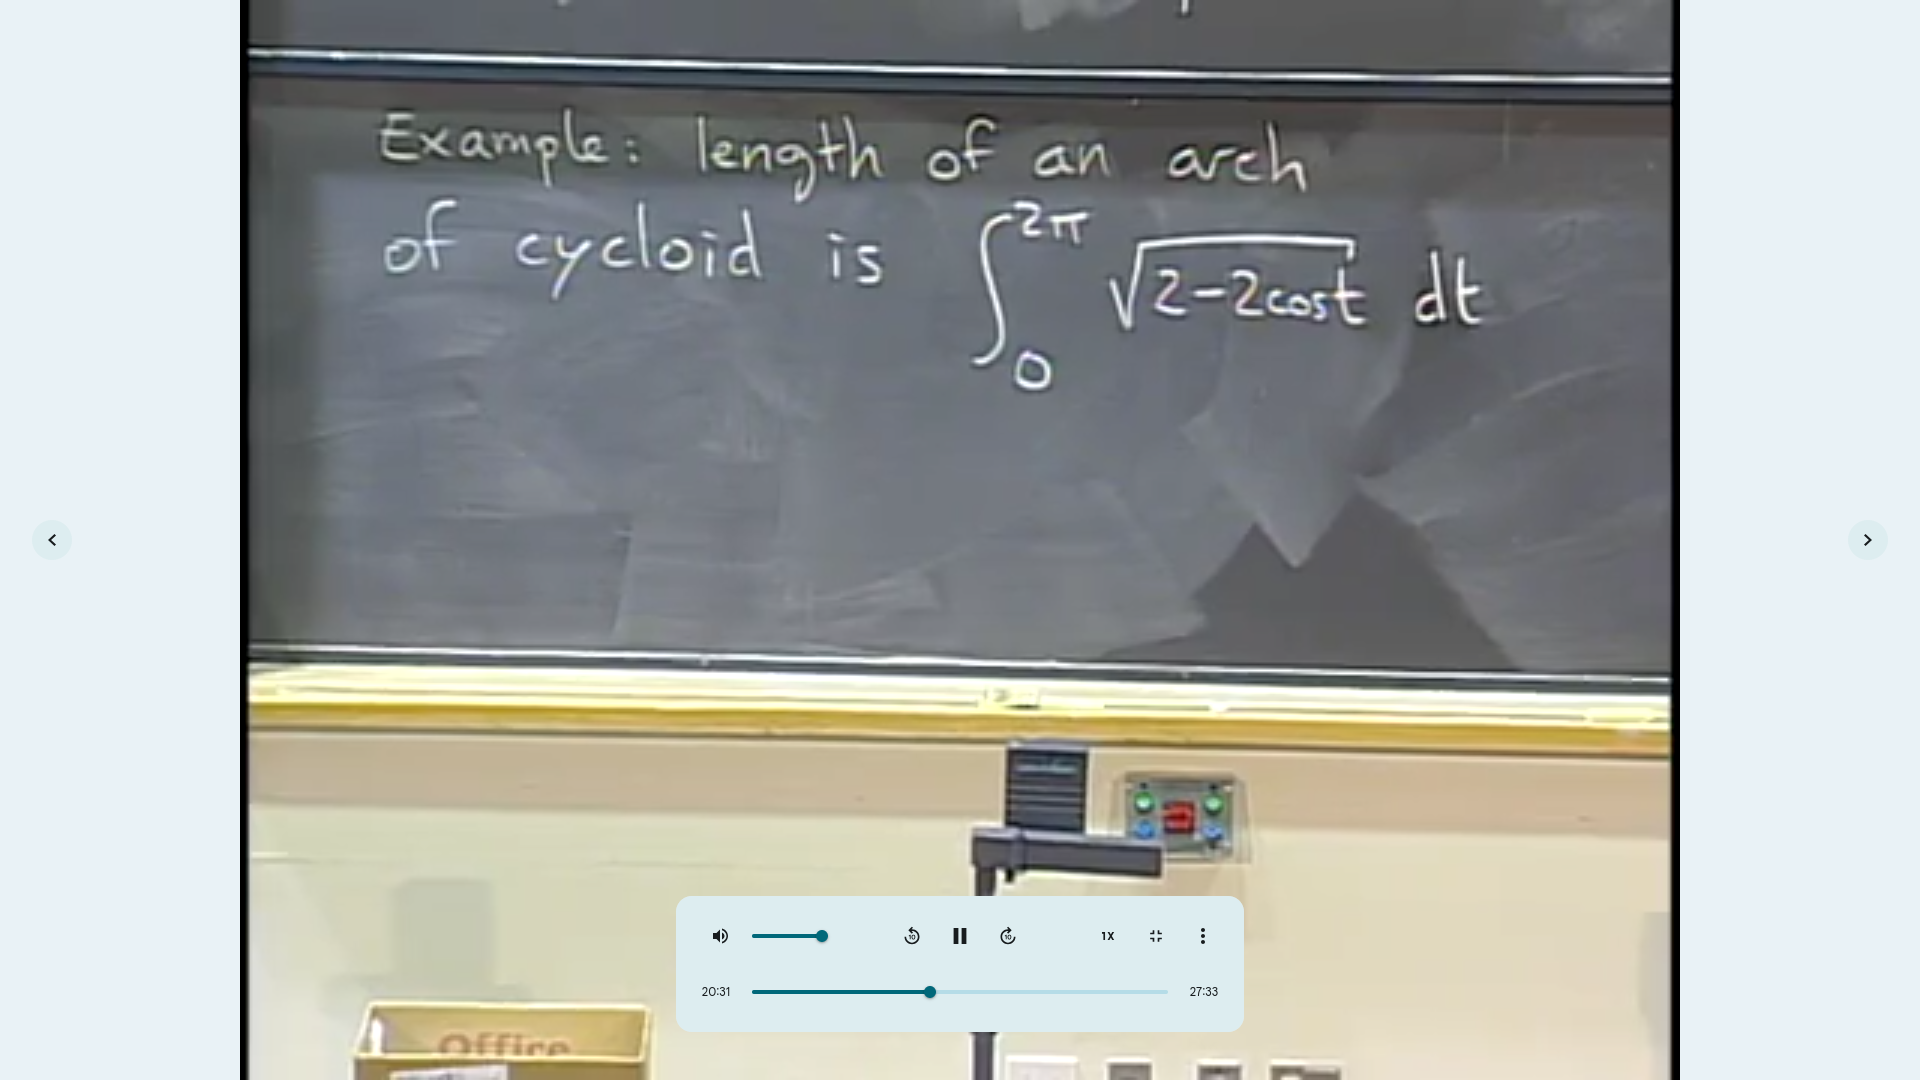 Example: length of an arch
of cycloid is ∫₀^{2π} √(2-2cost) dt
Office
10
10
1X
20:31
27:33